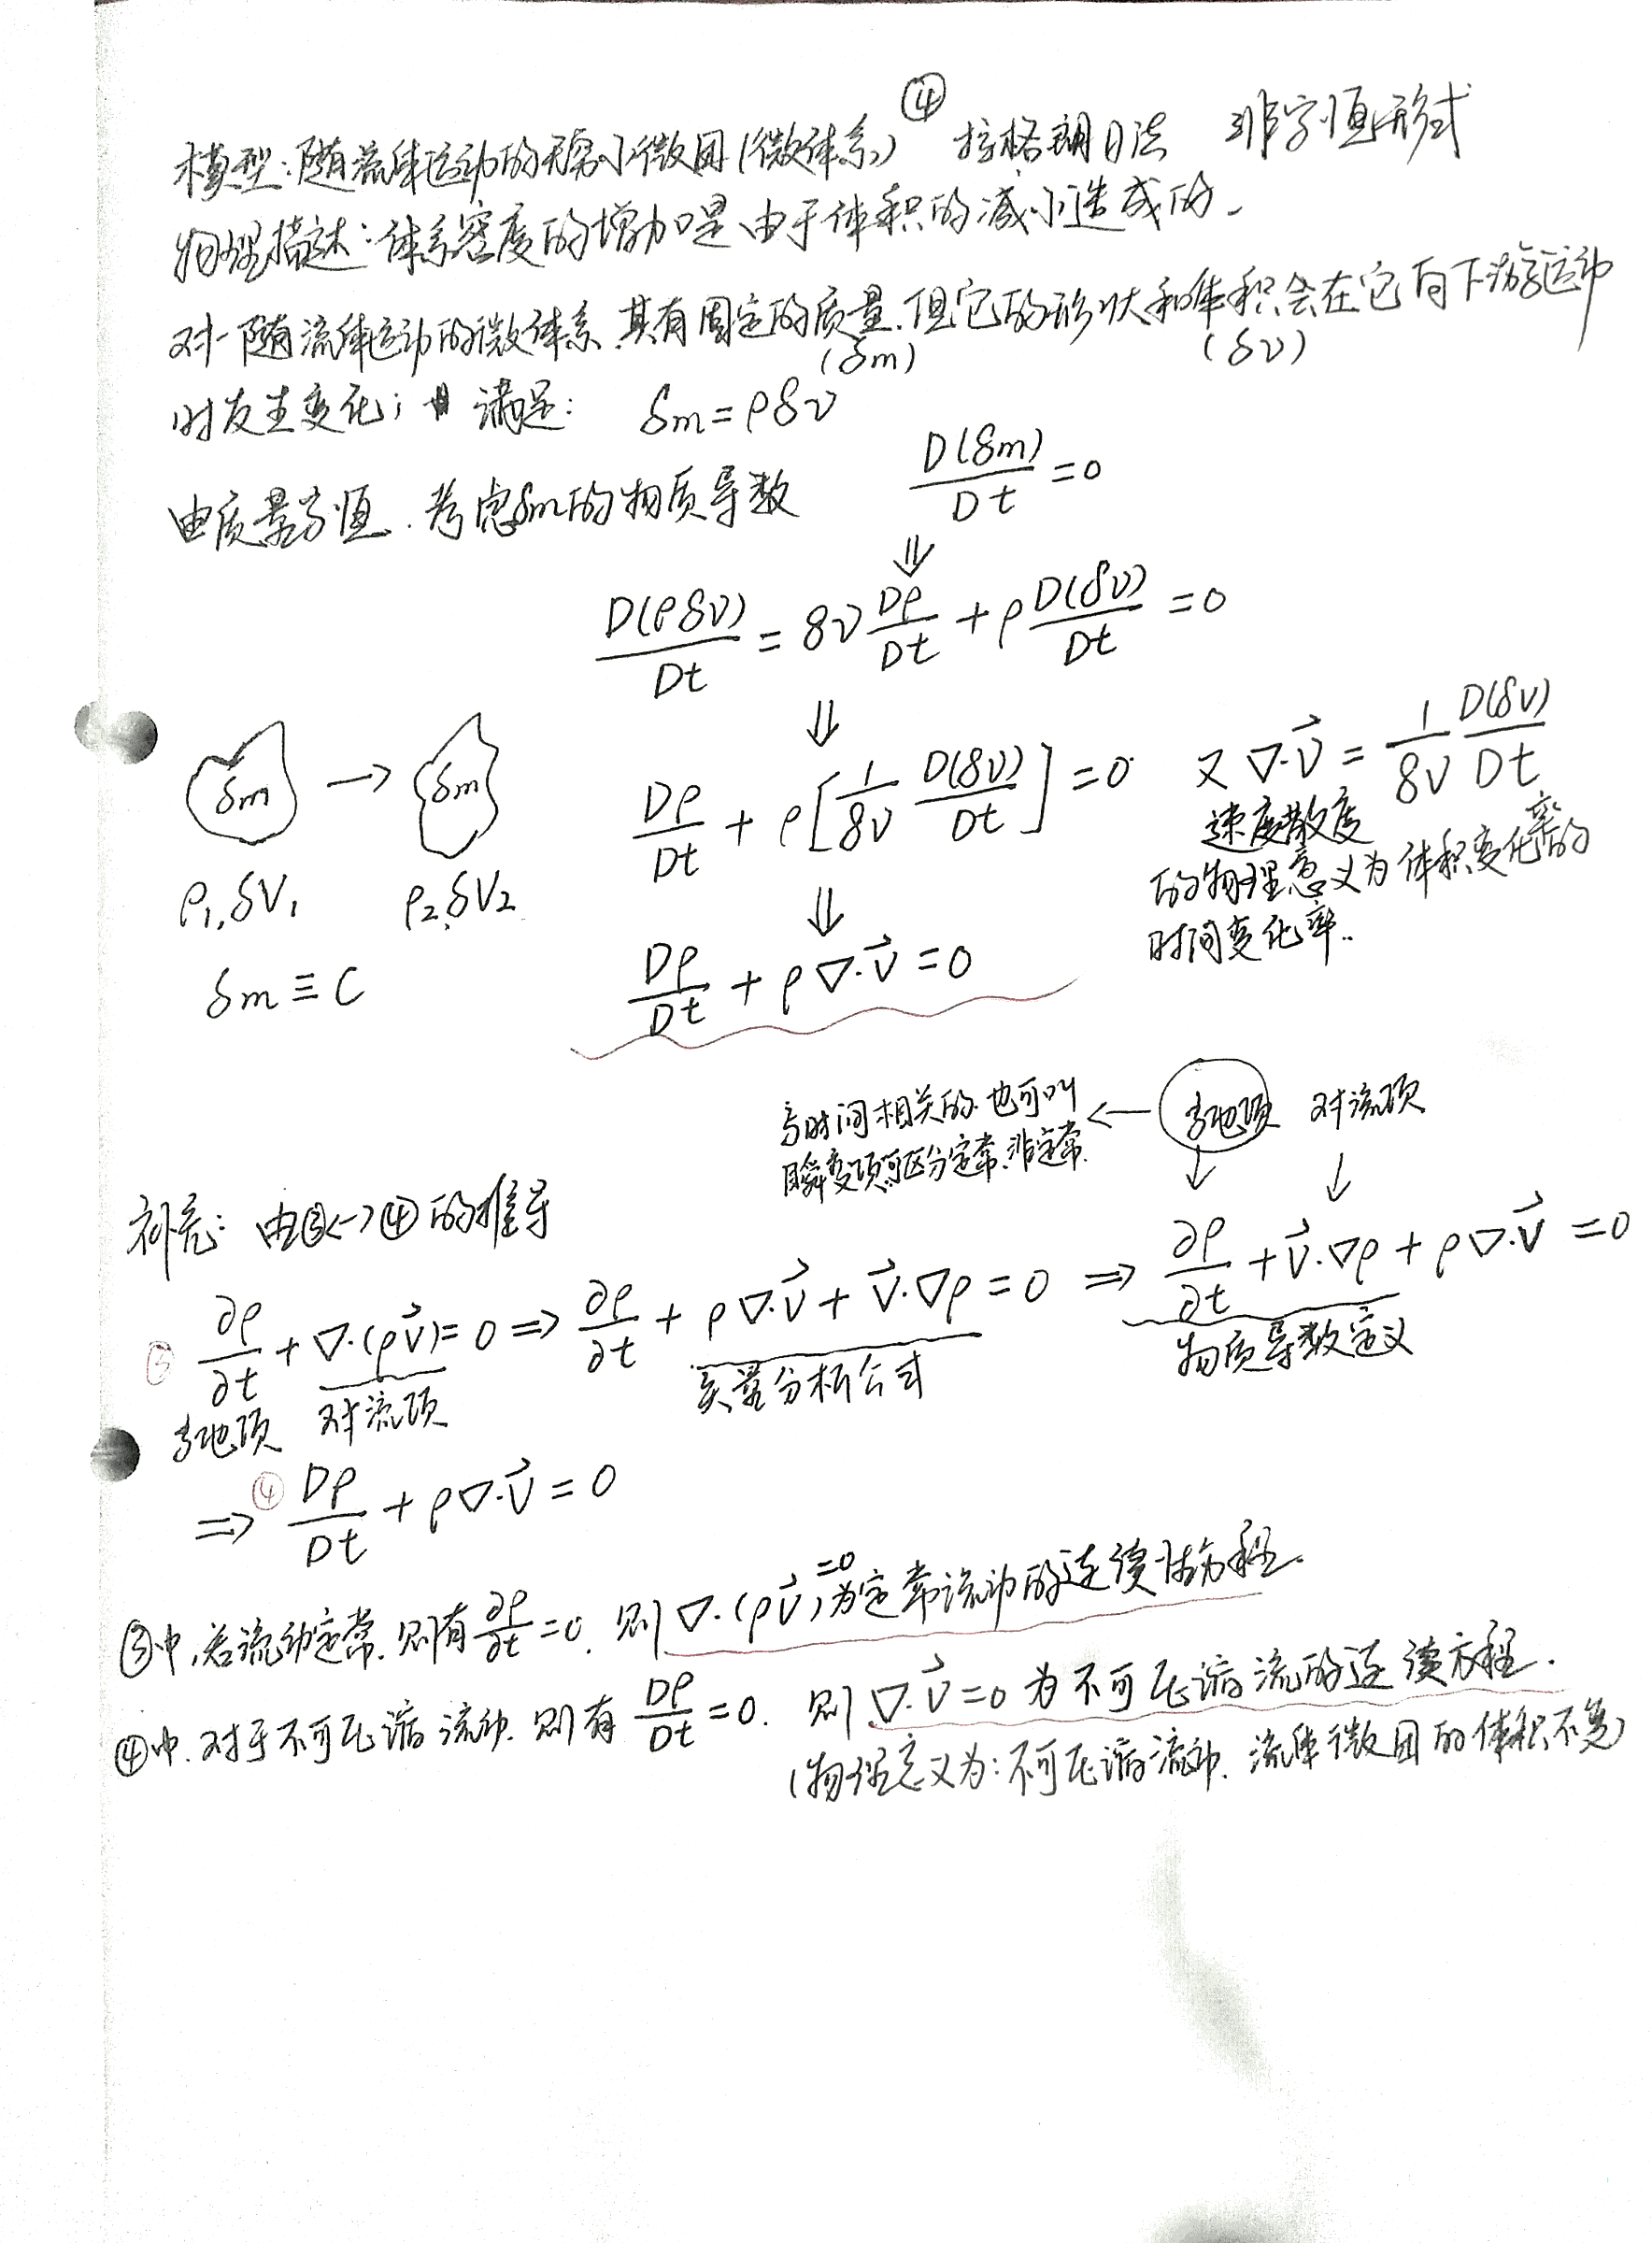 ④
模型：随流体运动的无穷小微团（微体系） 拉格朗日法 非守恒形式
物理描述：体系密度的增加是由于体积的减小造成的.
对一随流体运动的微体系，其有固定的质量，但它的形状和体积会在它向下游运动
(δm) (δV)
时发生变化； 满足： δm=ρδV
由质量守恒，考虑δm的物质导数 D(δm)/Dt=0
⇓
D(ρδV)/Dt = δV Dρ/Dt + ρ D(δV)/Dt = 0
⇓
δm → δm
Dρ/Dt + ρ[1/δV D(δV)/Dt] = 0 又 ∇·V⃗ = 1/δV D(δV)/Dt
速度散度
的物理意义为体积变化率的
时间变化率..
ρ₁,δV₁ ρ₂,δV₂
⇓
δm ≡ C
Dρ/Dt + ρ∇·V⃗ = 0
与时间相关的.也可叫 ← 当地项 对流项
瞬变项.可区分定常、非定常. ↓ ↓
补充：由③↔④的推导
③ ∂ρ/∂t + ∇·(ρV⃗) = 0 ⇒ ∂ρ/∂t + ρ∇·V⃗ + V⃗·∇ρ = 0 ⇒ ∂ρ/∂t + V⃗·∇ρ + ρ∇·V⃗ = 0
当地项 对流项 矢量分析公式 物质导数定义
⇒ ④ Dρ/Dt + ρ∇·V⃗ = 0
③中,若流动定常.则有∂ρ/∂t=0. 则∇·(ρV⃗)=0为定常流动的连续性方程.
④中.对于不可压缩流动.则有 Dρ/Dt=0. 则∇·V⃗=0为不可压缩流的连续方程.
(物理意义为：不可压缩流动.流体微团的体积不变)